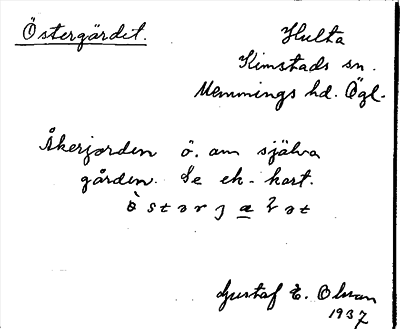 Östergärdet.
Hulta
Kimstads sn.
Memmings hd. Ögl.
Åkerjorden ö. om själva
gården. Se ek. kart.
Gustaf E. Olsson
1937